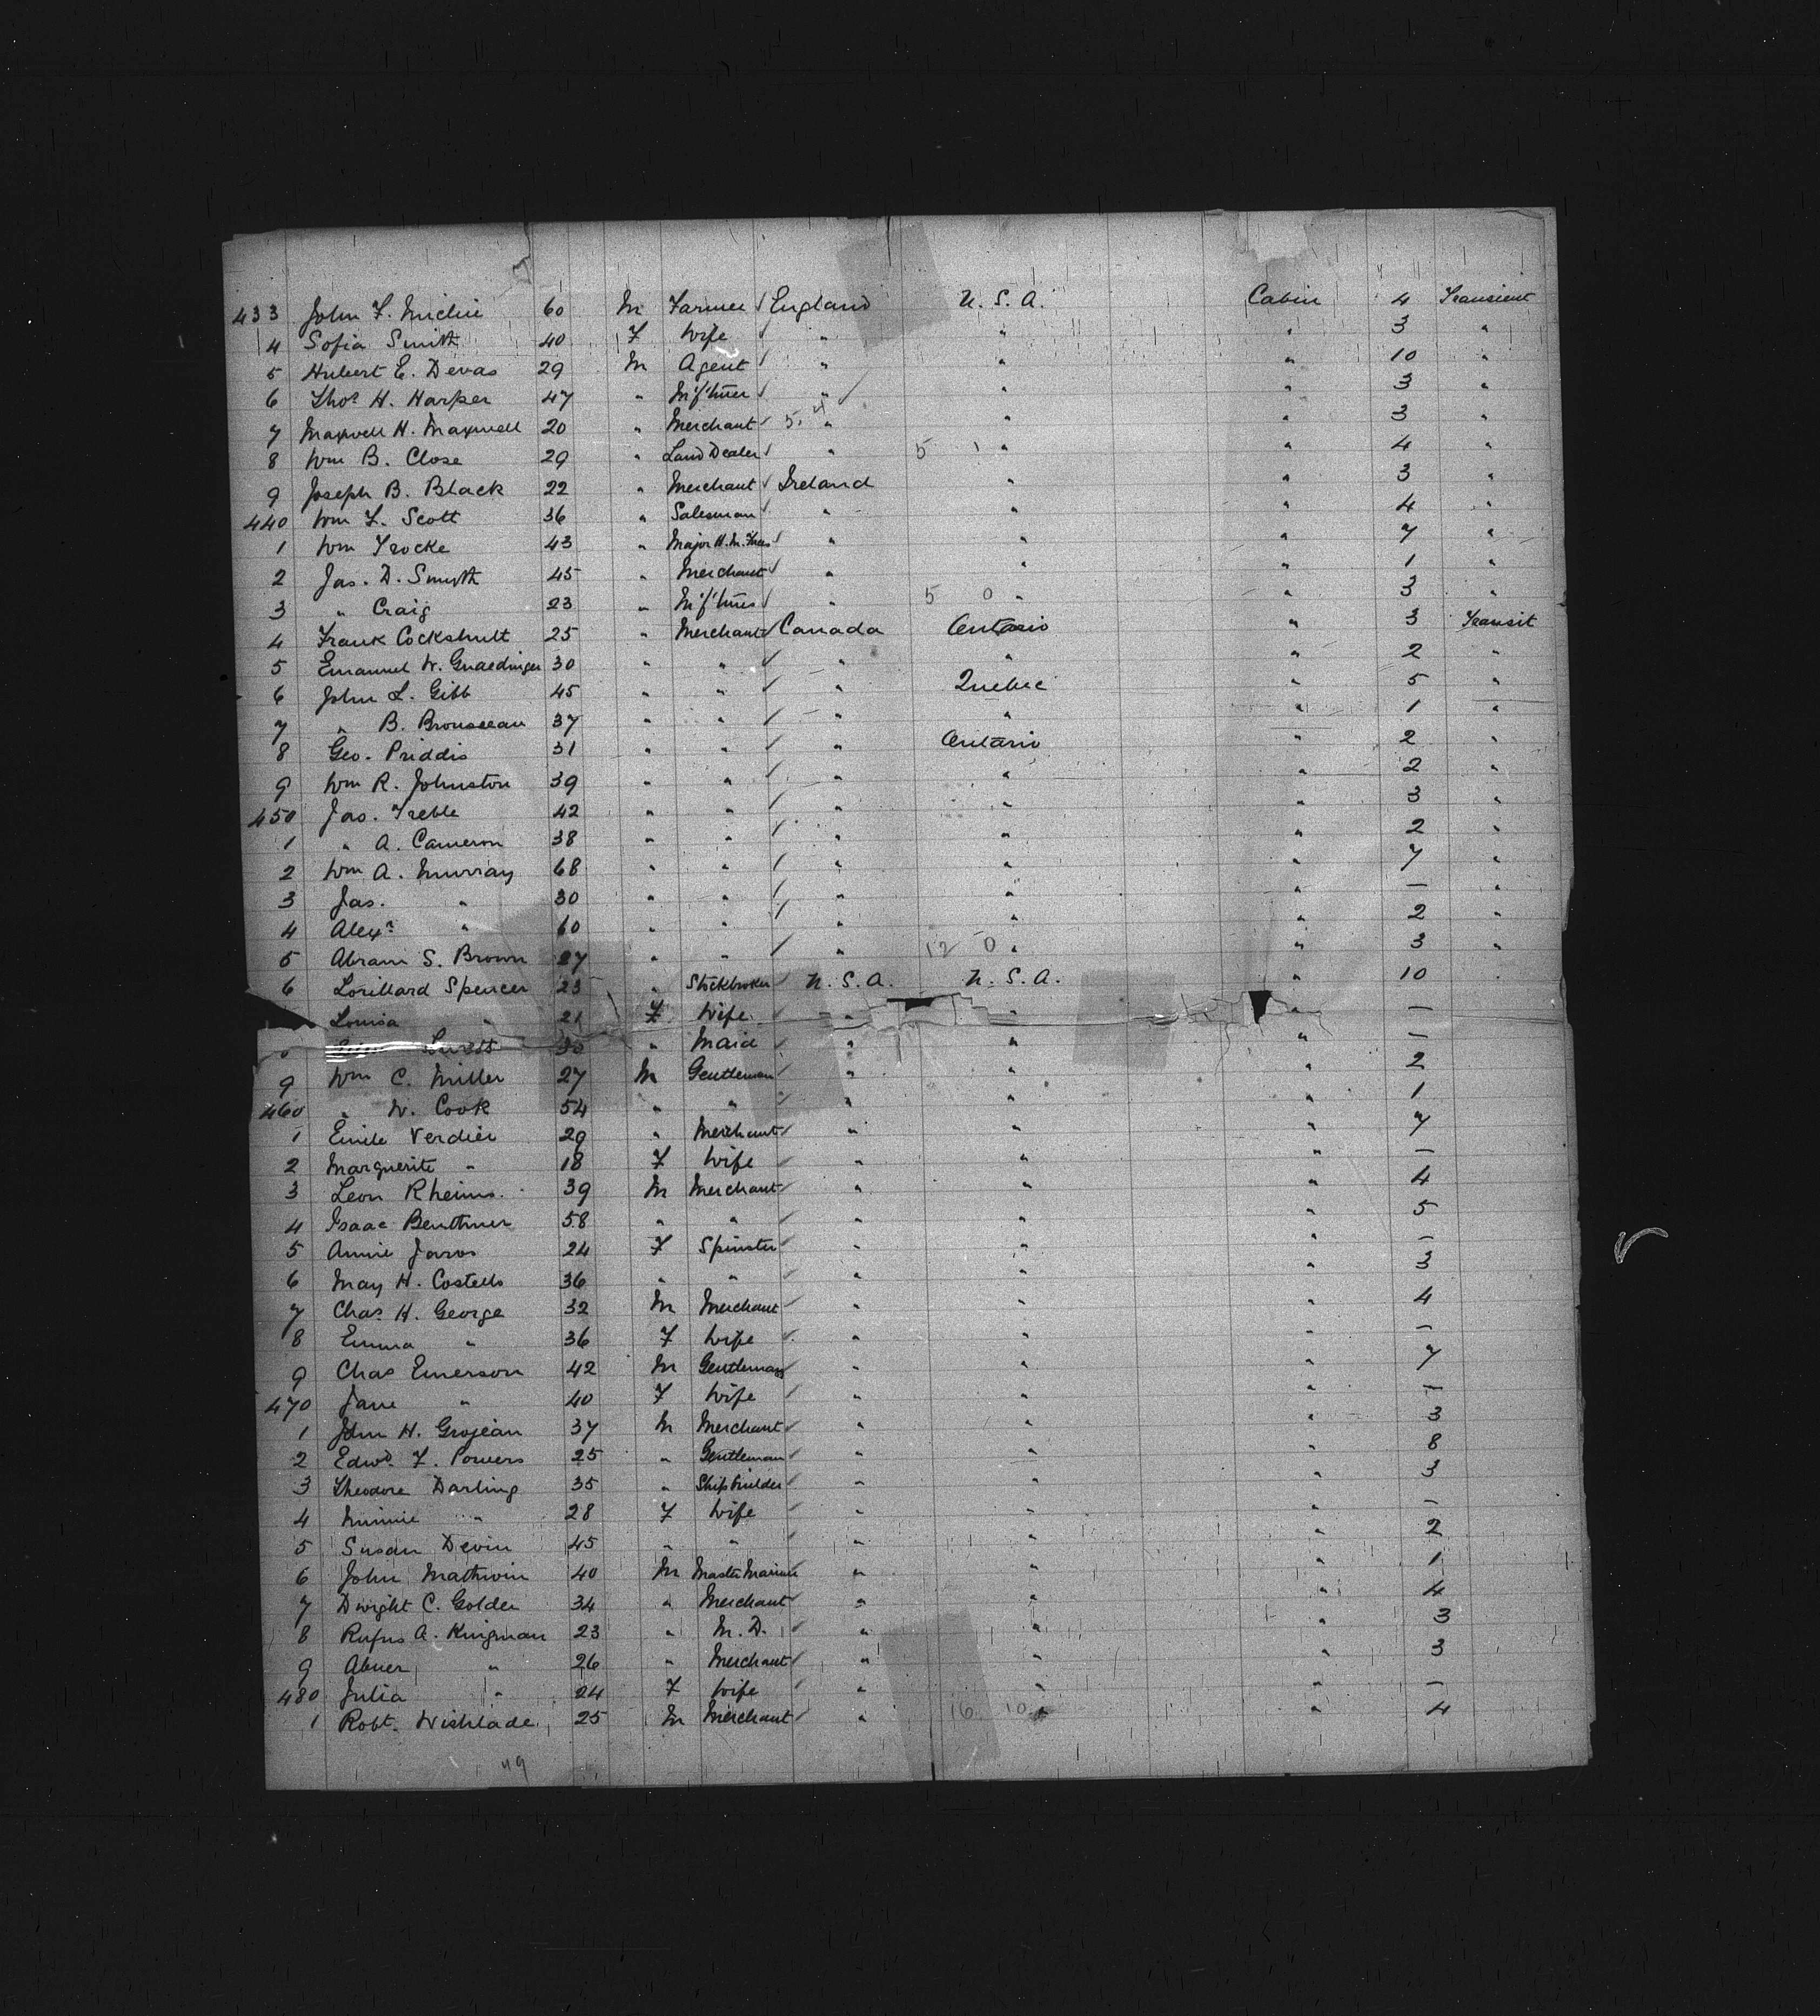 433 John F. Michie 60 M Farmer England U.S.A. Cabin 4 Transient
4 Sofia Smith 40 F Wife " " " 3 "
5 Hubert E. Devas 29 M Agent " " " 10 "
6 Thos H. Harper 47 " M'f'turer " " " 3 "
7 Maxwell H. Maxwell 20 " Merchant 5. 4 " " " 3 "
8 Wm B. Close 29 " Land Dealer " 5 1 " " 4 "
9 Joseph B. Black 22 " Merchant Ireland " " 3 "
440 Wm F. Scott 36 " Salesman " " " 4 "
1 Wm Trocke 43 " Major H.M. " " " 7 "
2 Jas. D. Smyth 45 " Merchant " " " 1 "
3 " Craig 23 " M'f'turer " 5 0 " " 3 "
4 Frank Cockshutt 25 " Merchant Canada Ontario " 3 Transit
5 Emanuel W. Gnaedinger 30 " " " " " 2 "
6 John L. Gibb 45 " " " Quebec " 5 "
7 " B. Brousseau 37 " " " " " 1 "
8 Geo. Priddis 31 " " " Ontario " 2 "
9 Wm R. Johnston 39 " " " " " 2 "
450 Jas. Treble 42 " " " " " 3 "
1 " A. Cameron 38 " " " " " 2 "
2 Wm A. Murray 68 " " " " " 7 "
3 Jas. " 30 " " " " " — "
4 Alexr " 60 " " " " " 2 "
5 Abram S. Brown 27 " " " 12 0 " " 3 "
6 Lorillard Spencer 23 " Stockbroker U.S.A. U.S.A. " 10
Louisa " 21 F Wife " " —
30 " Maid " " " —
9 Wm C. Miller 27 M Gentleman " " " 2
460 " W. Cook 54 " " " " " 1
1 Emile Verdier 29 " Merchant " " " 7
2 Marguerite " 18 F Wife " " " —
3 Leon Rheims 39 M Merchant " " " 4
4 Isaac Benthner 58 " " " " " 5
5 Annie Jaros 24 F Spinster " " " —
6 May H. Costello 36 " " " " " 3
7 Chas. H. George 32 M Merchant " " " 4
8 Emma " 36 F Wife " " " —
9 Chas Emerson 42 M Gentleman " " " 7
470 Jane " 40 F Wife " " " —
1 John H. Grojean 37 M Merchant " " " 3
2 Edwd. F. Powers 25 " Gentleman " " " 8
3 Theodore Darling 35 " Shipbuilder " " " 3
4 Minnie " 28 F Wife " " " —
5 Susan Devin 45 " " " " " 2
6 John Mathwin 40 M Master Mariner " " " 1
7 Dwight C. Golder 34 " Merchant " " " 4
8 Rufus A. Kingman 23 " M.D. " " " 3
9 Abner " 26 " Merchant " " " 3
480 Julia " 24 F Wife " " " —
1 Robt. Wishlade 25 M Merchant " 16 10 " " 4
49